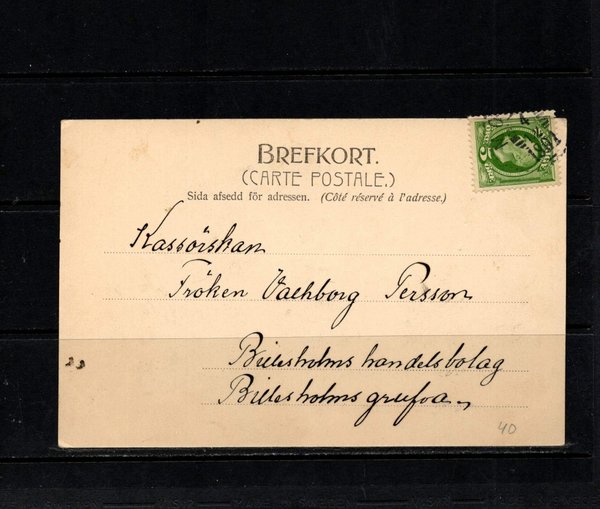 BREFKORT.
(CARTE POSTALE.)
Sida afsedd för adressen. (Côté réservé à l'adresse.)
Kassörskan
Fröken Valhborg Persson
Billesholms handelsbolag
Billesholms grufva
40